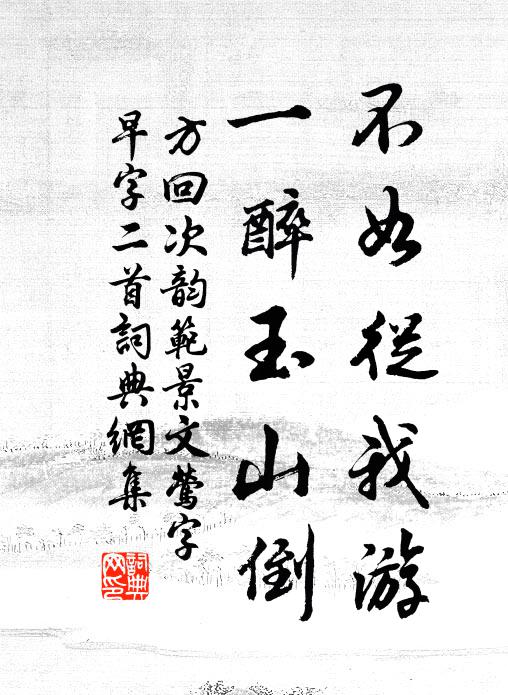 不如從我游
一醉玉山倒
方回次韵範景文鶯字
早字二首詞典網集
詞典
网印